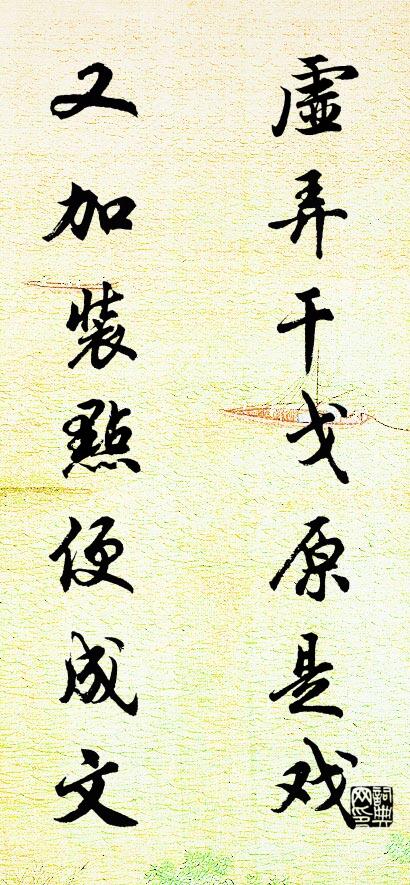 虚弄干戈原是戏
又加装點便成文
詞典网印